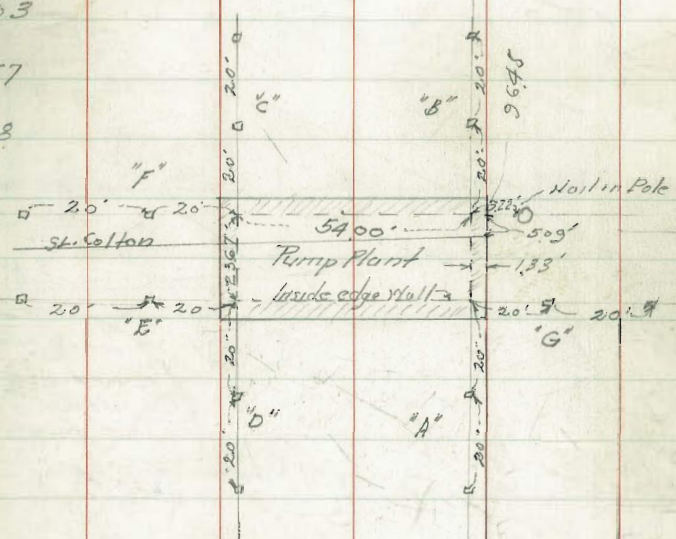 3
7
8
20'
20'
"C"
"B"
20'
20'
96.45
"F"
20'
20'
54.00'
Nail in Pole
5.09'
St. Colton
23.67'
Pump Plant
1.33'
Inside edge Wall
20'
20
"E"
20'
20'
"G"
20'
20'
"D"
"A"
20"
20'